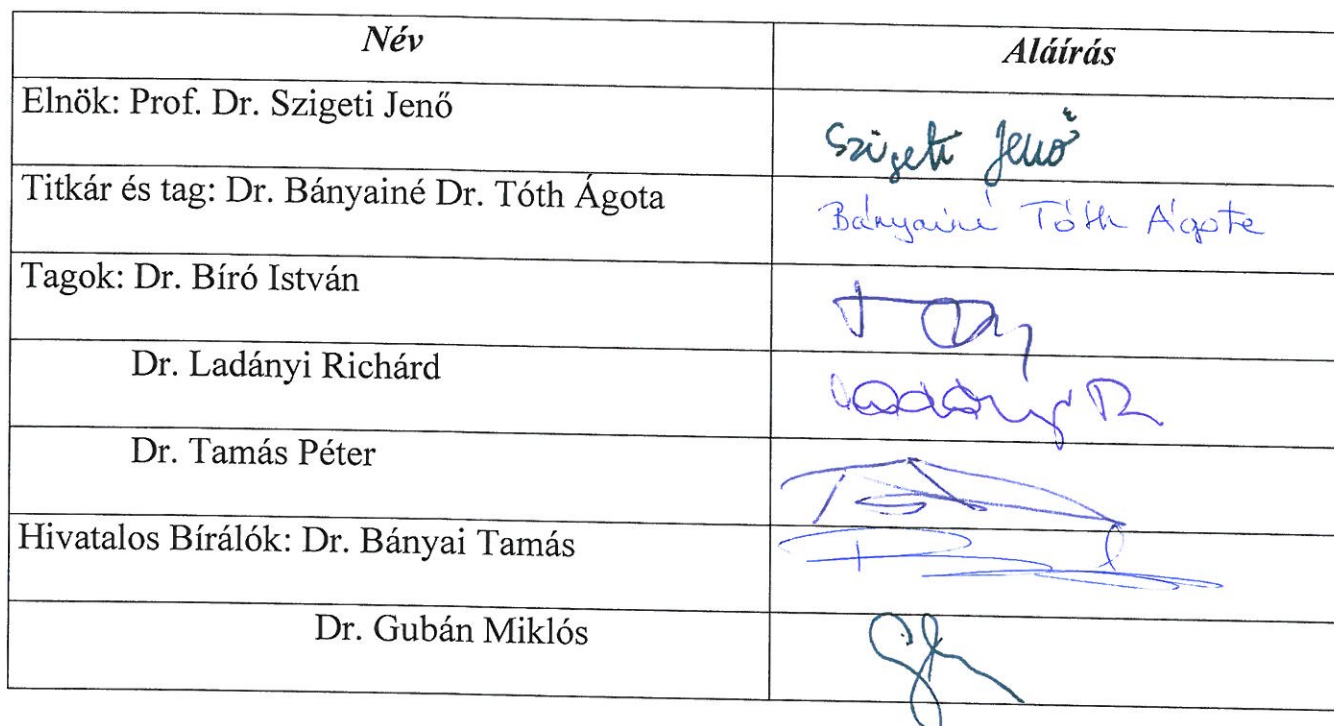 Név Aláírás
Elnök: Prof. Dr. Szigeti Jenő Szigeti Jenő
Titkár és tag: Dr. Bányainé Dr. Tóth Ágota Bányainé Tóth Ágota
Tagok: Dr. Bíró István
Dr. Ladányi Richárd Ladányi R
Dr. Tamás Péter
Hivatalos Bírálók: Dr. Bányai Tamás
Dr. Gubán Miklós